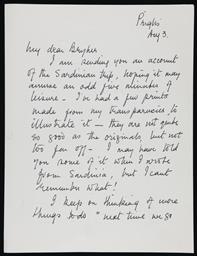 Aug 3.
My dear Brigker
I am sending you an account
of the Sardinian trip, hoping it may
amuse an odd five minutes of
leisure - I've had a few prints
made from my transparencies to
illustrate it - they are not quite
so good as the originals but not
too far off - I may have told
you some of it when I wrote
from Sardinia, but I can't
remember what!
I keep on thinking of more
things to do "next time we go